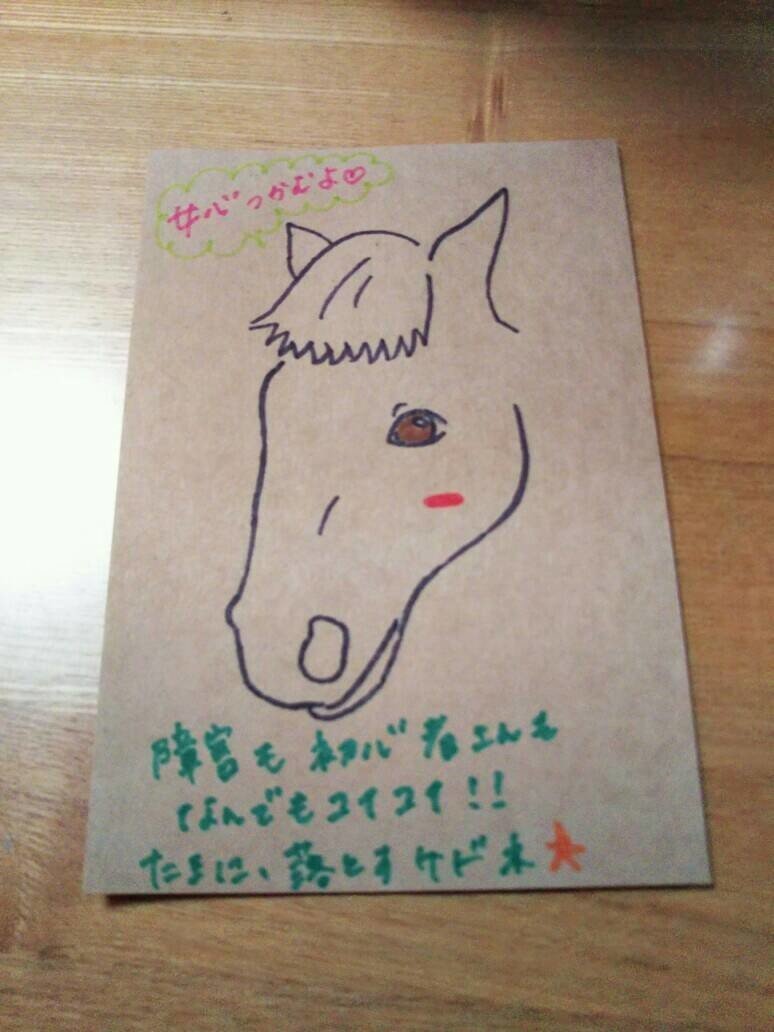 女心つかむよ♡
障害も初心者さんも
なんでもコイコイ!!
たまに、落とすケドネ★